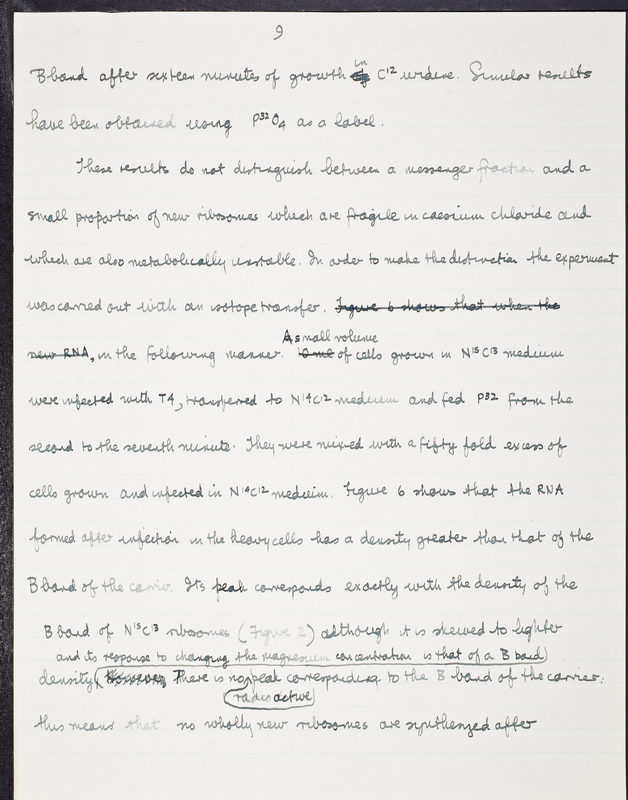 9
B band after sixteen minutes of growth in C12 uridine. Similar results
have been obtained using P32O4 as a label.
These results do not distinguish between a messenger fraction and a
small proportion of new ribosomes which are fragile in caesium chloride and
which are also metabolically unstable. In order to make the distinction the experiment
was carried out with an isotope transfer. Figure 6 shows that when the
new RNA, in the following manner. 10 ml of cells grown in N15C13 medium
A small volume
were infected with T4, transferred to N14C12 medium and fed P32 from the
second to the seventh minute. They were mixed with a fifty fold excess of
cells grown and infected in N14C12 medium. Figure 6 shows that the RNA
formed after infection in the heavy cells has a density greater than that of the
B band of the carrier. Its peak corresponds exactly with the density of the
B band of N15C13 ribosomes (Figure 2) although it is skewed to lighter
and its response to changing the magnesium concentration is that of a B band
density. However, There is no peak corresponding to the B band of the carrier;
radioactive
this means that no wholly new ribosomes are synthesized after